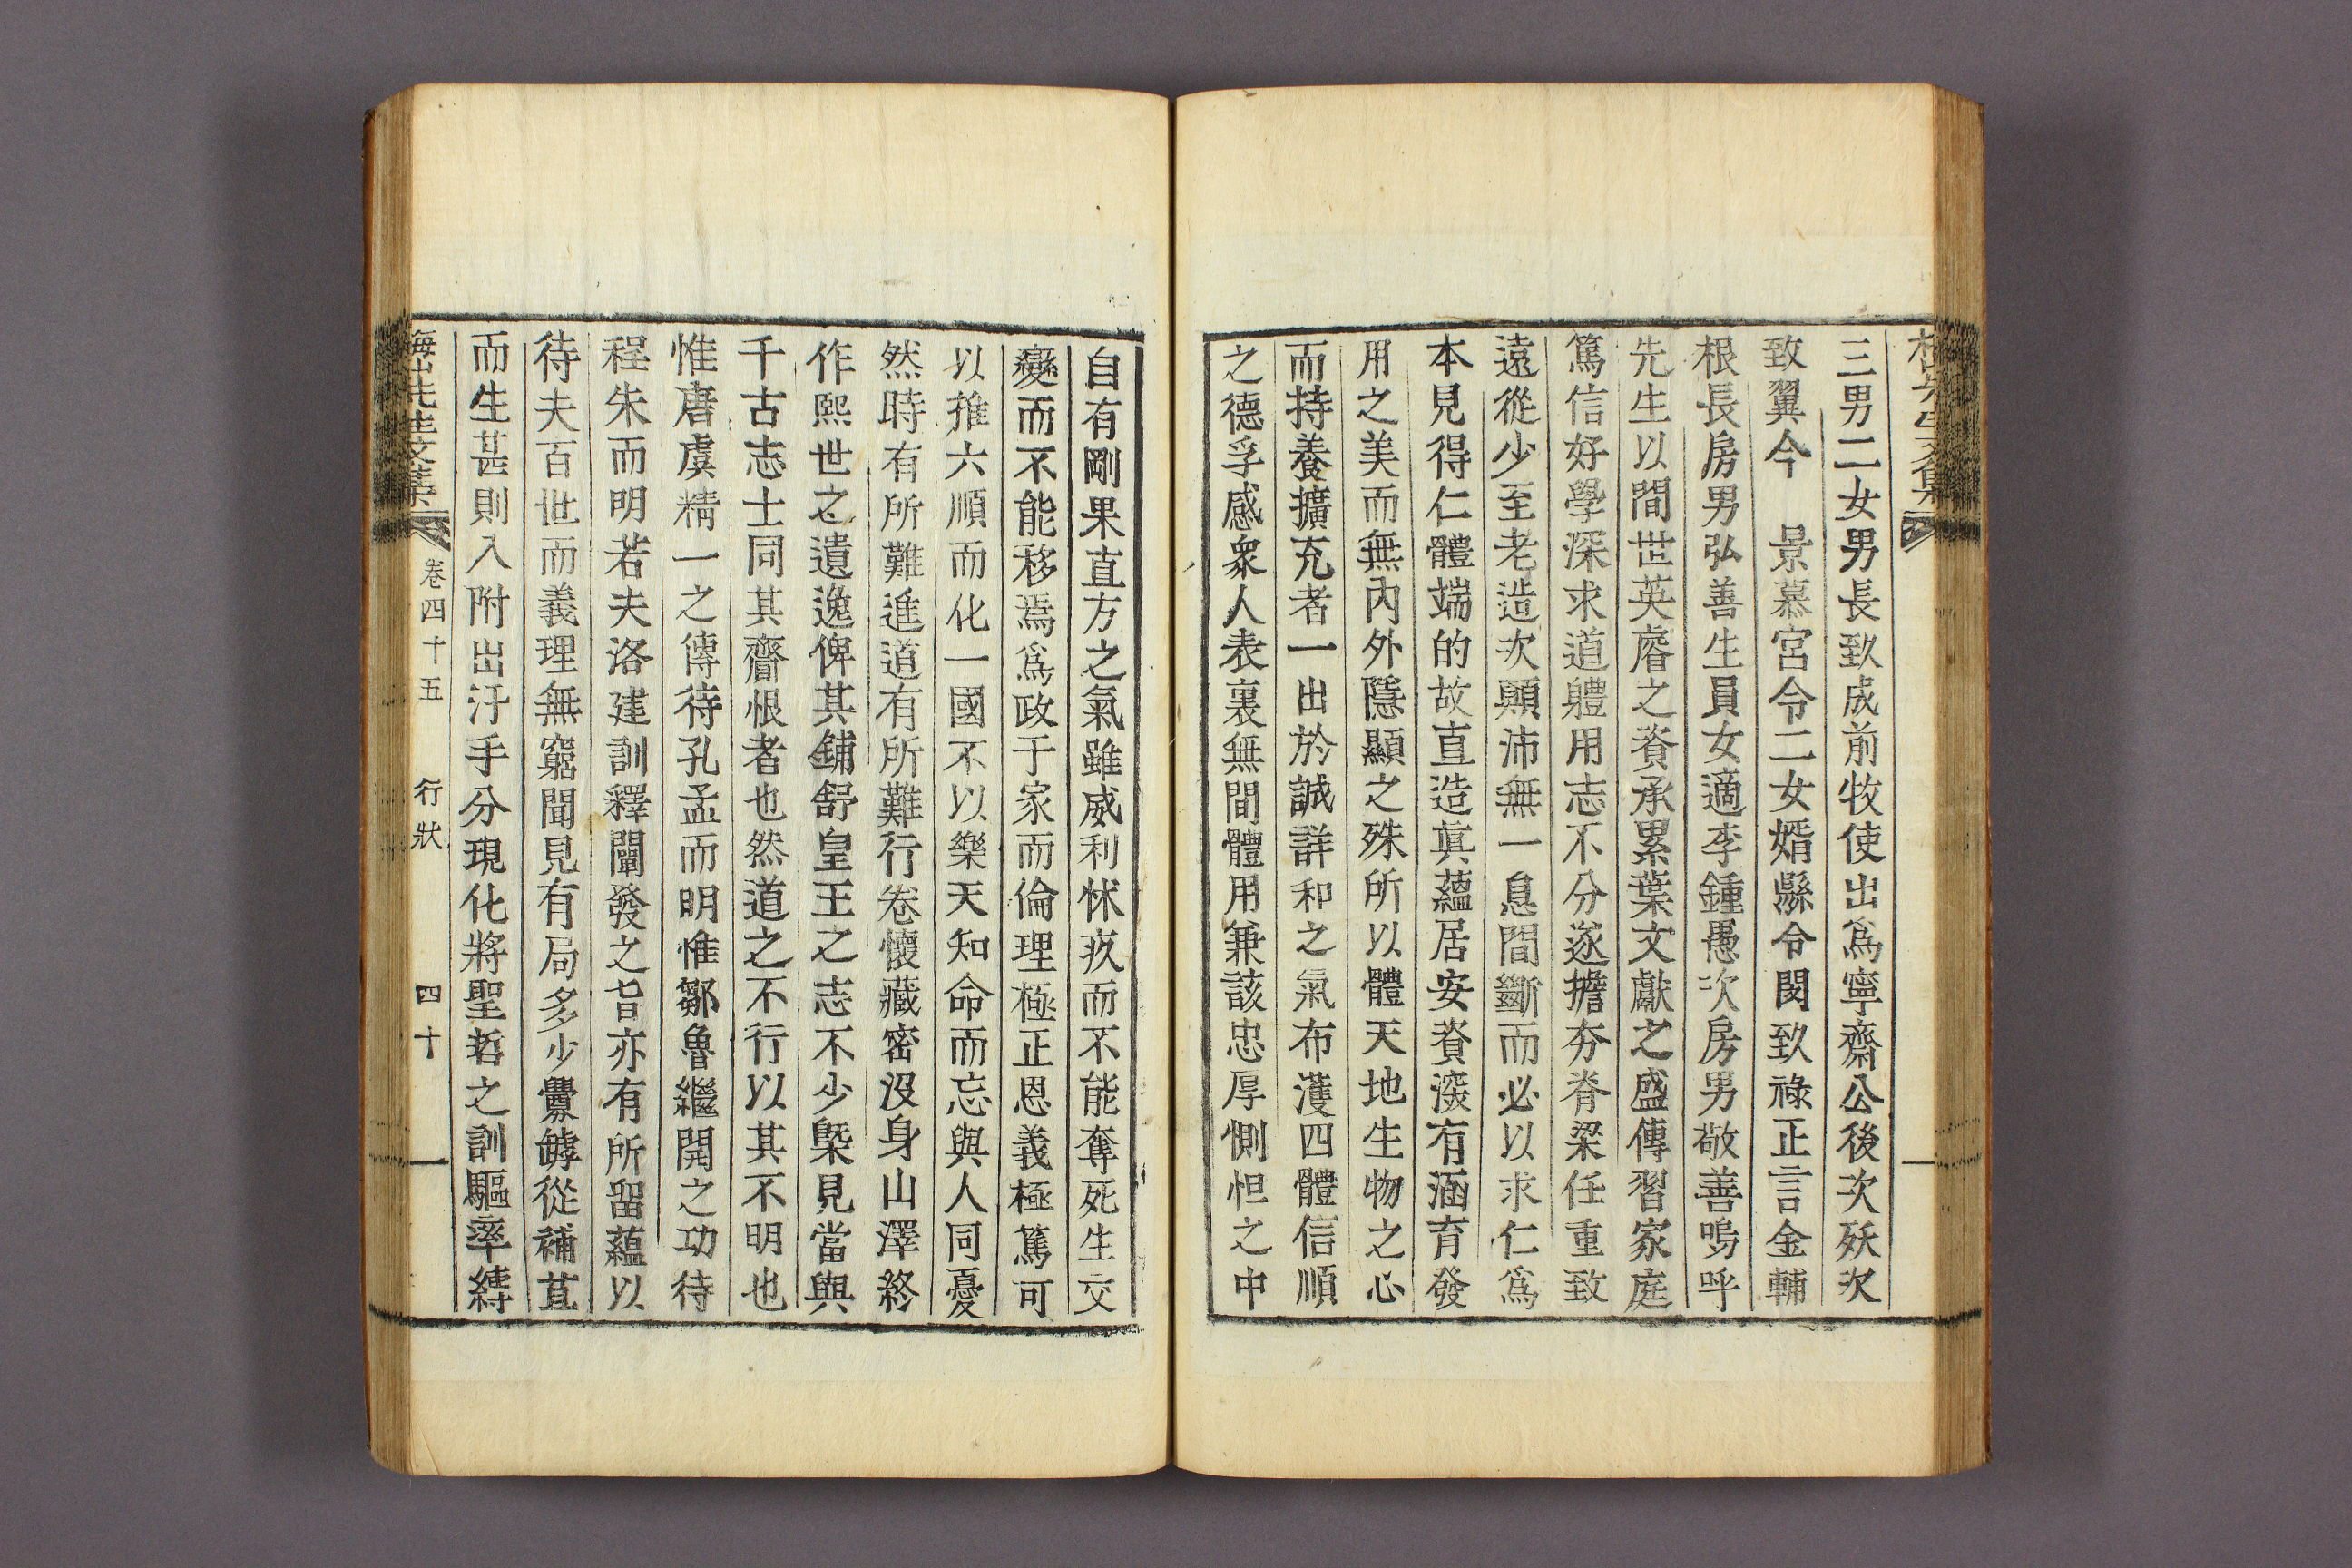 三男二女男長致成前牧使出爲寧齋公後次殀次
致翼今　景慕宮令二女婿縣令閔致祿正言金輔
根長房男弘善生員女適李鍾愚次房男敬善嗚呼
先生以間世英睿之資承累葉文獻之盛傳習家庭
篤信好學深求道軆用志不分遂擔夯脊梁任重致
遠從少至老造次顚沛無一息間斷而必以求仁爲
本見得仁體端的故直造眞蘊居安資深有涵育發
用之美而無內外隱顯之殊所以體天地生物之心
而持養擴充者一出於誠詳和之氣布濩四體信順
之德孚感衆人表裏無間體用兼該忠厚惻怛之中
自有剛果直方之氣雖威利怵疚而不能奪死生交
變而不能移焉爲政于家而倫理極正恩義極篤可
以推六順而化一國不以樂天知命而忘與人同憂
然時有所難進道有所難行卷懷藏密沒身山澤終
作熙世之遺逸俾其鋪舒皇王之志不少槩見當與
千古志士同其齎恨者也然道之不行以其不明也
惟唐虞精一之傳待孔孟而明惟鄒魯繼開之功待
程朱而明若夫洛建訓釋闡發之旨亦有所留蘊以
待夫百世而義理無窮聞見有局多少釁罅從補苴
而生甚則入附出汙手分現化將聖哲之訓驅率縛
梅山先生文集　卷四十五　行狀　四十